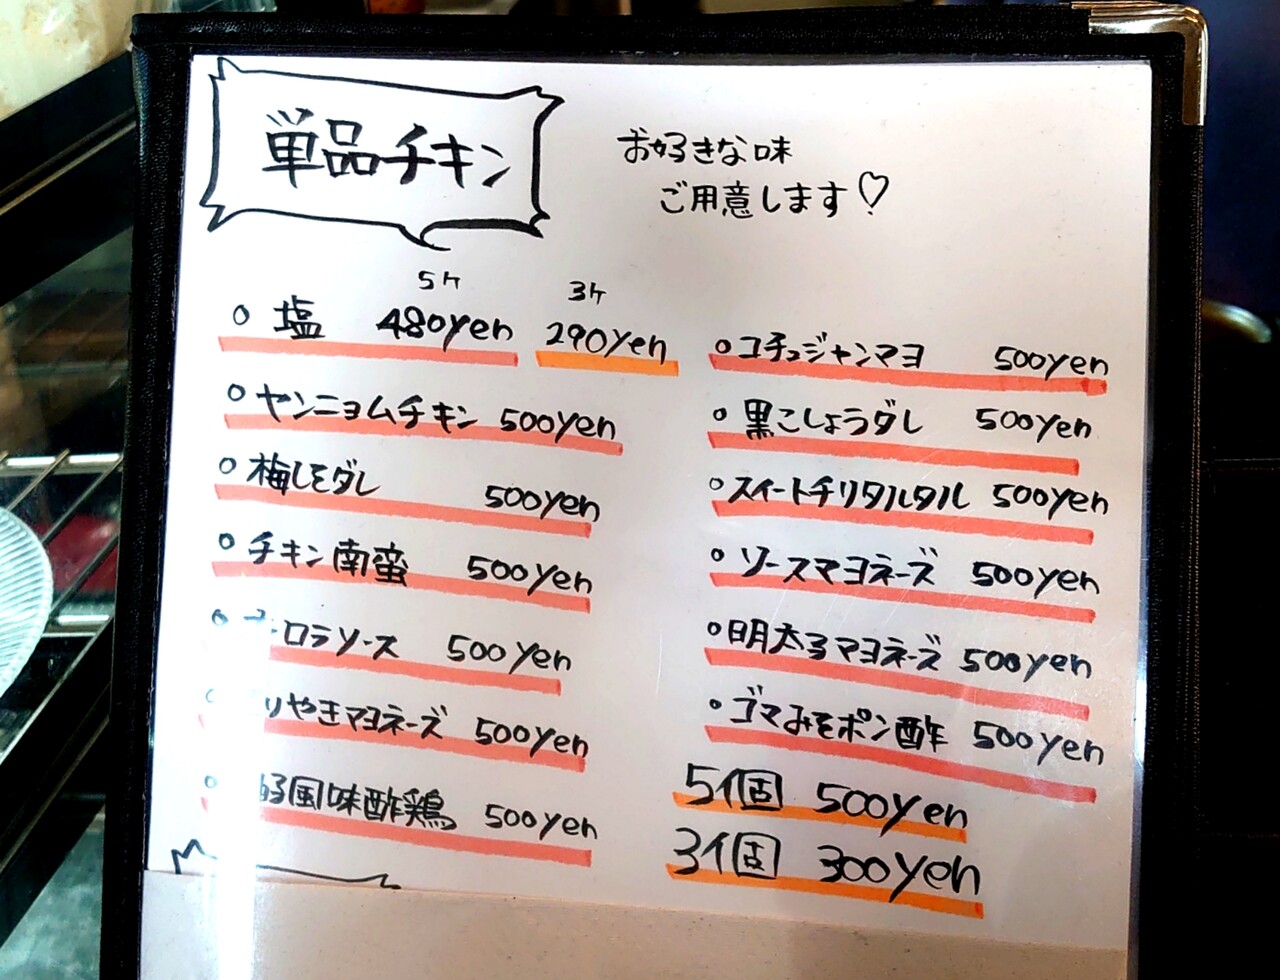 単品チキン
お好きな味
ご用意します♡
5ケ 3ケ
○ 塩 480yen 290yen
○ ヤンニョムチキン 500yen
○ 梅しそダレ 500yen
○ チキン南蛮 500yen
ーロラソース 500yen
りやきマヨネーズ 500yen
国味酢鶏 500yen
○ コチュジャンマヨ 500yen
○ 黒こしょうダレ 500yen
○ スイートチリタルタル 500yen
○ ソースマヨネーズ 500yen
○ 明太子マヨネーズ 500yen
○ ゴマみそポン酢 500yen
5個 500yen
3個 300yen